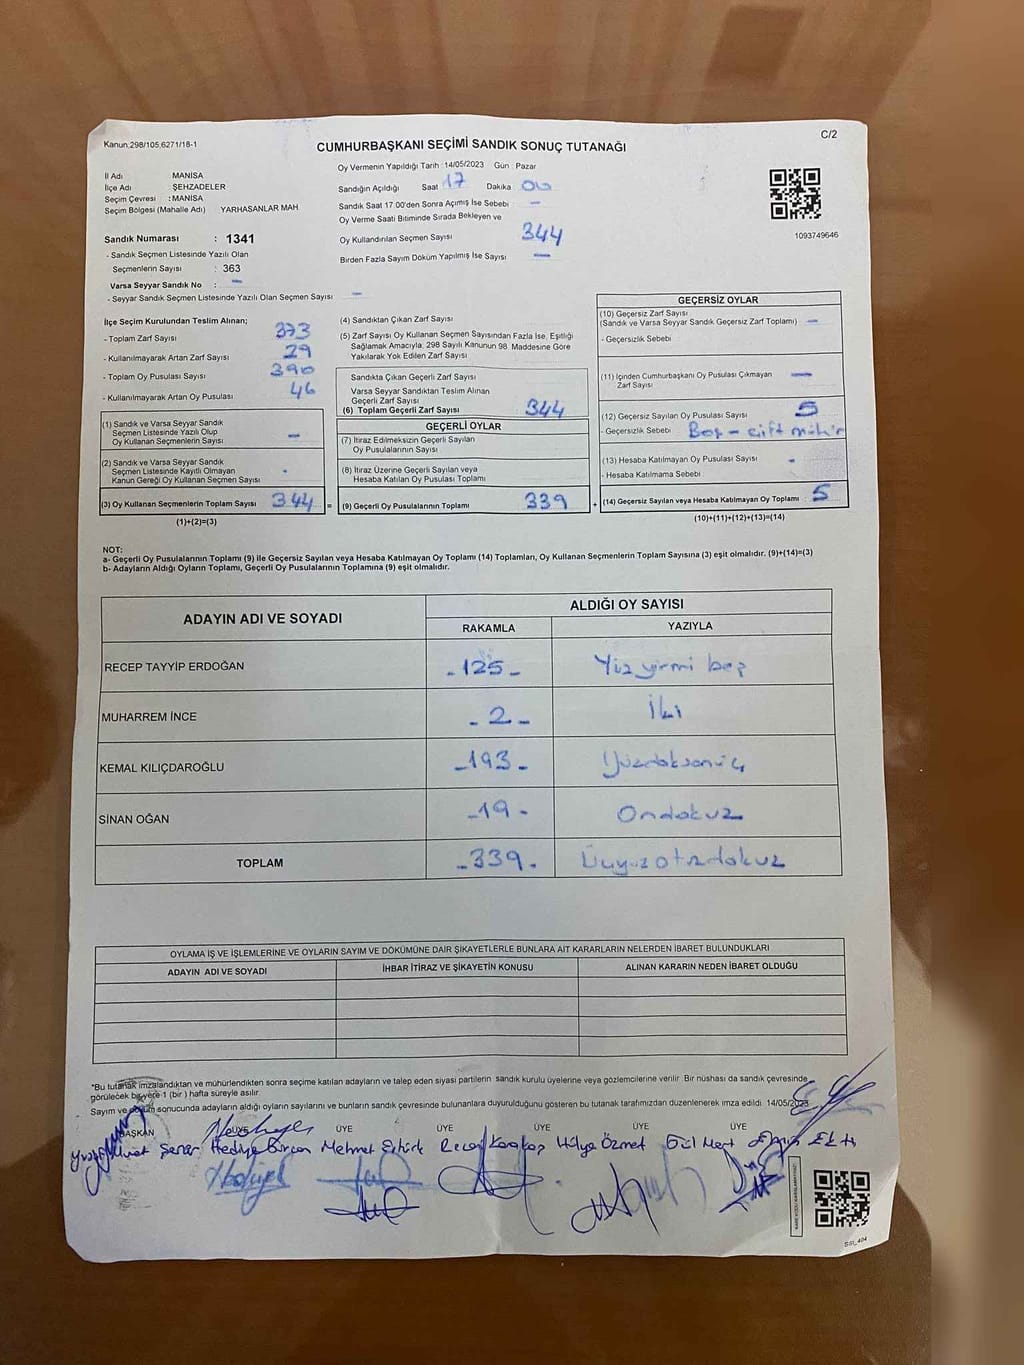 Kanun.298/105,6271/18-1
C/2
CUMHURBAŞKANI SEÇİMİ SANDIK SONUÇ TUTANAĞI
Oy Vermenin Yapıldığı Tarih : 14/05/2023 Gün : Pazar
İl Adı : MANİSA
İlçe Adı : ŞEHZADELER
Seçim Çevresi : MANİSA
Seçim Bölgesi (Mahalle Adı) YARHASANLAR MAH.
Sandık Numarası : 1341
- Sandık Seçmen Listesinde Yazılı Olan
Seçmenlerin Sayısı : 363
Varsa Seyyar Sandık No : -
- Seyyar Sandık Seçmen Listesinde Yazılı Olan Seçmen Sayısı -
Sandığın Açıldığı Saat 17 Dakika 00
Sandık Saat 17.00'den Sonra Açımış İse Sebebi -
Oy Verme Saati Bitiminde Sırada Bekleyen ve
Oy Kullandırılan Seçmen Sayısı 344
Birden Fazla Sayım Döküm Yapılmış İse Sayısı -
1093749646
İlçe Seçim Kurulundan Teslim Alınan;
- Toplam Zarf Sayısı 373
- Kullanılmayarak Artan Zarf Sayısı 29
- Toplam Oy Pusulası Sayısı 390
- Kullanılmayarak Artan Oy Pusulası 46
(1) Sandık ve Varsa Seyyar Sandık
Seçmen Listesinde Yazılı Olup
Oy Kullanan Seçmenlerin Sayısı -
(2) Sandık ve Varsa Seyyar Sandık
Seçmen Listesinde Kayıtlı Olmayan
Kanun Gereği Oy Kullanan Seçmen Sayısı -
(3) Oy Kullanan Seçmenlerin Toplam Sayısı 344 =
(1)+(2)=(3)
(4) Sandıktan Çıkan Zarf Sayısı
(5) Zarf Sayısı Oy Kullanan Seçmen Sayısından Fazla İse, Eşitliği
Sağlamak Amacıyla, 298 Sayılı Kanunun 98. Maddesine Göre
Yakılarak Yok Edilen Zarf Sayısı
Sandıkta Çıkan Geçerli Zarf Sayısı
Varsa Seyyar Sandıktan Teslim Alınan
Geçerli Zarf Sayısı
(6) Toplam Geçerli Zarf Sayısı 344
GEÇERLİ OYLAR
(7) İtiraz Edilmeksizin Geçerli Sayılan
Oy Pusulalarının Sayısı
(8) İtiraz Üzerine Geçerli Sayılan veya
Hesaba Katılan Oy Pusulası Toplamı
(9) Geçerli Oy Pusulalarının Toplamı 339 +
GEÇERSİZ OYLAR
(10) Geçersiz Zarf Sayısı
(Sandık ve Varsa Seyyar Sandık Geçersiz Zarf Toplamı) -
- Geçersizlik Sebebi
(11) İçinden Cumhurbaşkanı Oy Pusulası Çıkmayan
Zarf Sayısı -
(12) Geçersiz Sayılan Oy Pusulası Sayısı 5
- Geçersizlik Sebebi Boş - çift mühür
(13) Hesaba Katılmayan Oy Pusulası Sayısı -
- Hesaba Katılmama Sebebi
(14) Geçersiz Sayılan veya Hesaba Katılmayan Oy Toplamı : 5
(10)+(11)+(12)+(13)=(14)
NOT:
a- Geçerli Oy Pusulalarının Toplamı (9) ile Geçersiz Sayılan veya Hesaba Katılmayan Oy Toplamı (14) Toplamları, Oy Kullanan Seçmenlerin Toplam Sayısına (3) eşit olmalıdır. (9)+(14)=(3)
b- Adayların Aldığı Oyların Toplamı, Geçerli Oy Pusulalarının Toplamına (9) eşit olmalıdır.
ADAYIN ADI VE SOYADI
ALDIĞI OY SAYISI
RAKAMLA YAZIYLA
RECEP TAYYİP ERDOĞAN -125- Yüz yirmi beş
MUHARREM İNCE -2- İki
KEMAL KILIÇDAROĞLU -193- Yüzdoksanüç
SİNAN OĞAN -19- Ondokuz
TOPLAM -339- Üçyüzotuzdokuz
OYLAMA İŞ VE İŞLEMLERİNE VE OYLARIN SAYIM VE DÖKÜMÜNE DAİR ŞİKAYETLERLE BUNLARA AİT KARARLARIN NELERDEN İBARET BULUNDUKLARI
ADAYIN ADI VE SOYADI İHBAR İTİRAZ VE ŞİKAYETİN KONUSU ALINAN KARARIN NEDEN İBARET OLDUĞU
*Bu tutanak imzalandıktan ve mühürlendikten sonra seçime katılan adayların ve talep eden siyasi partilerin sandık kurulu üyelerine veya gözlemcilerine verilir. Bir nüshası da sandık çevresinde
görülecek bir yere 1 (bir ) hafta süreyle asılır.
Sayım ve döküm sonucunda adayların aldığı oyların sayılarını ve bunların sandık çevresinde bulunanlara duyurulduğunu gösteren bu tutanak tarafımızdan düzenlenerek imza edildi. 14/05/2023
BAŞKAN ÜYE ÜYE ÜYE ÜYE ÜYE ÜYE
Şener Hediye Mehmet Ertürk Hülya Özmet Gül Mert
SSI_404